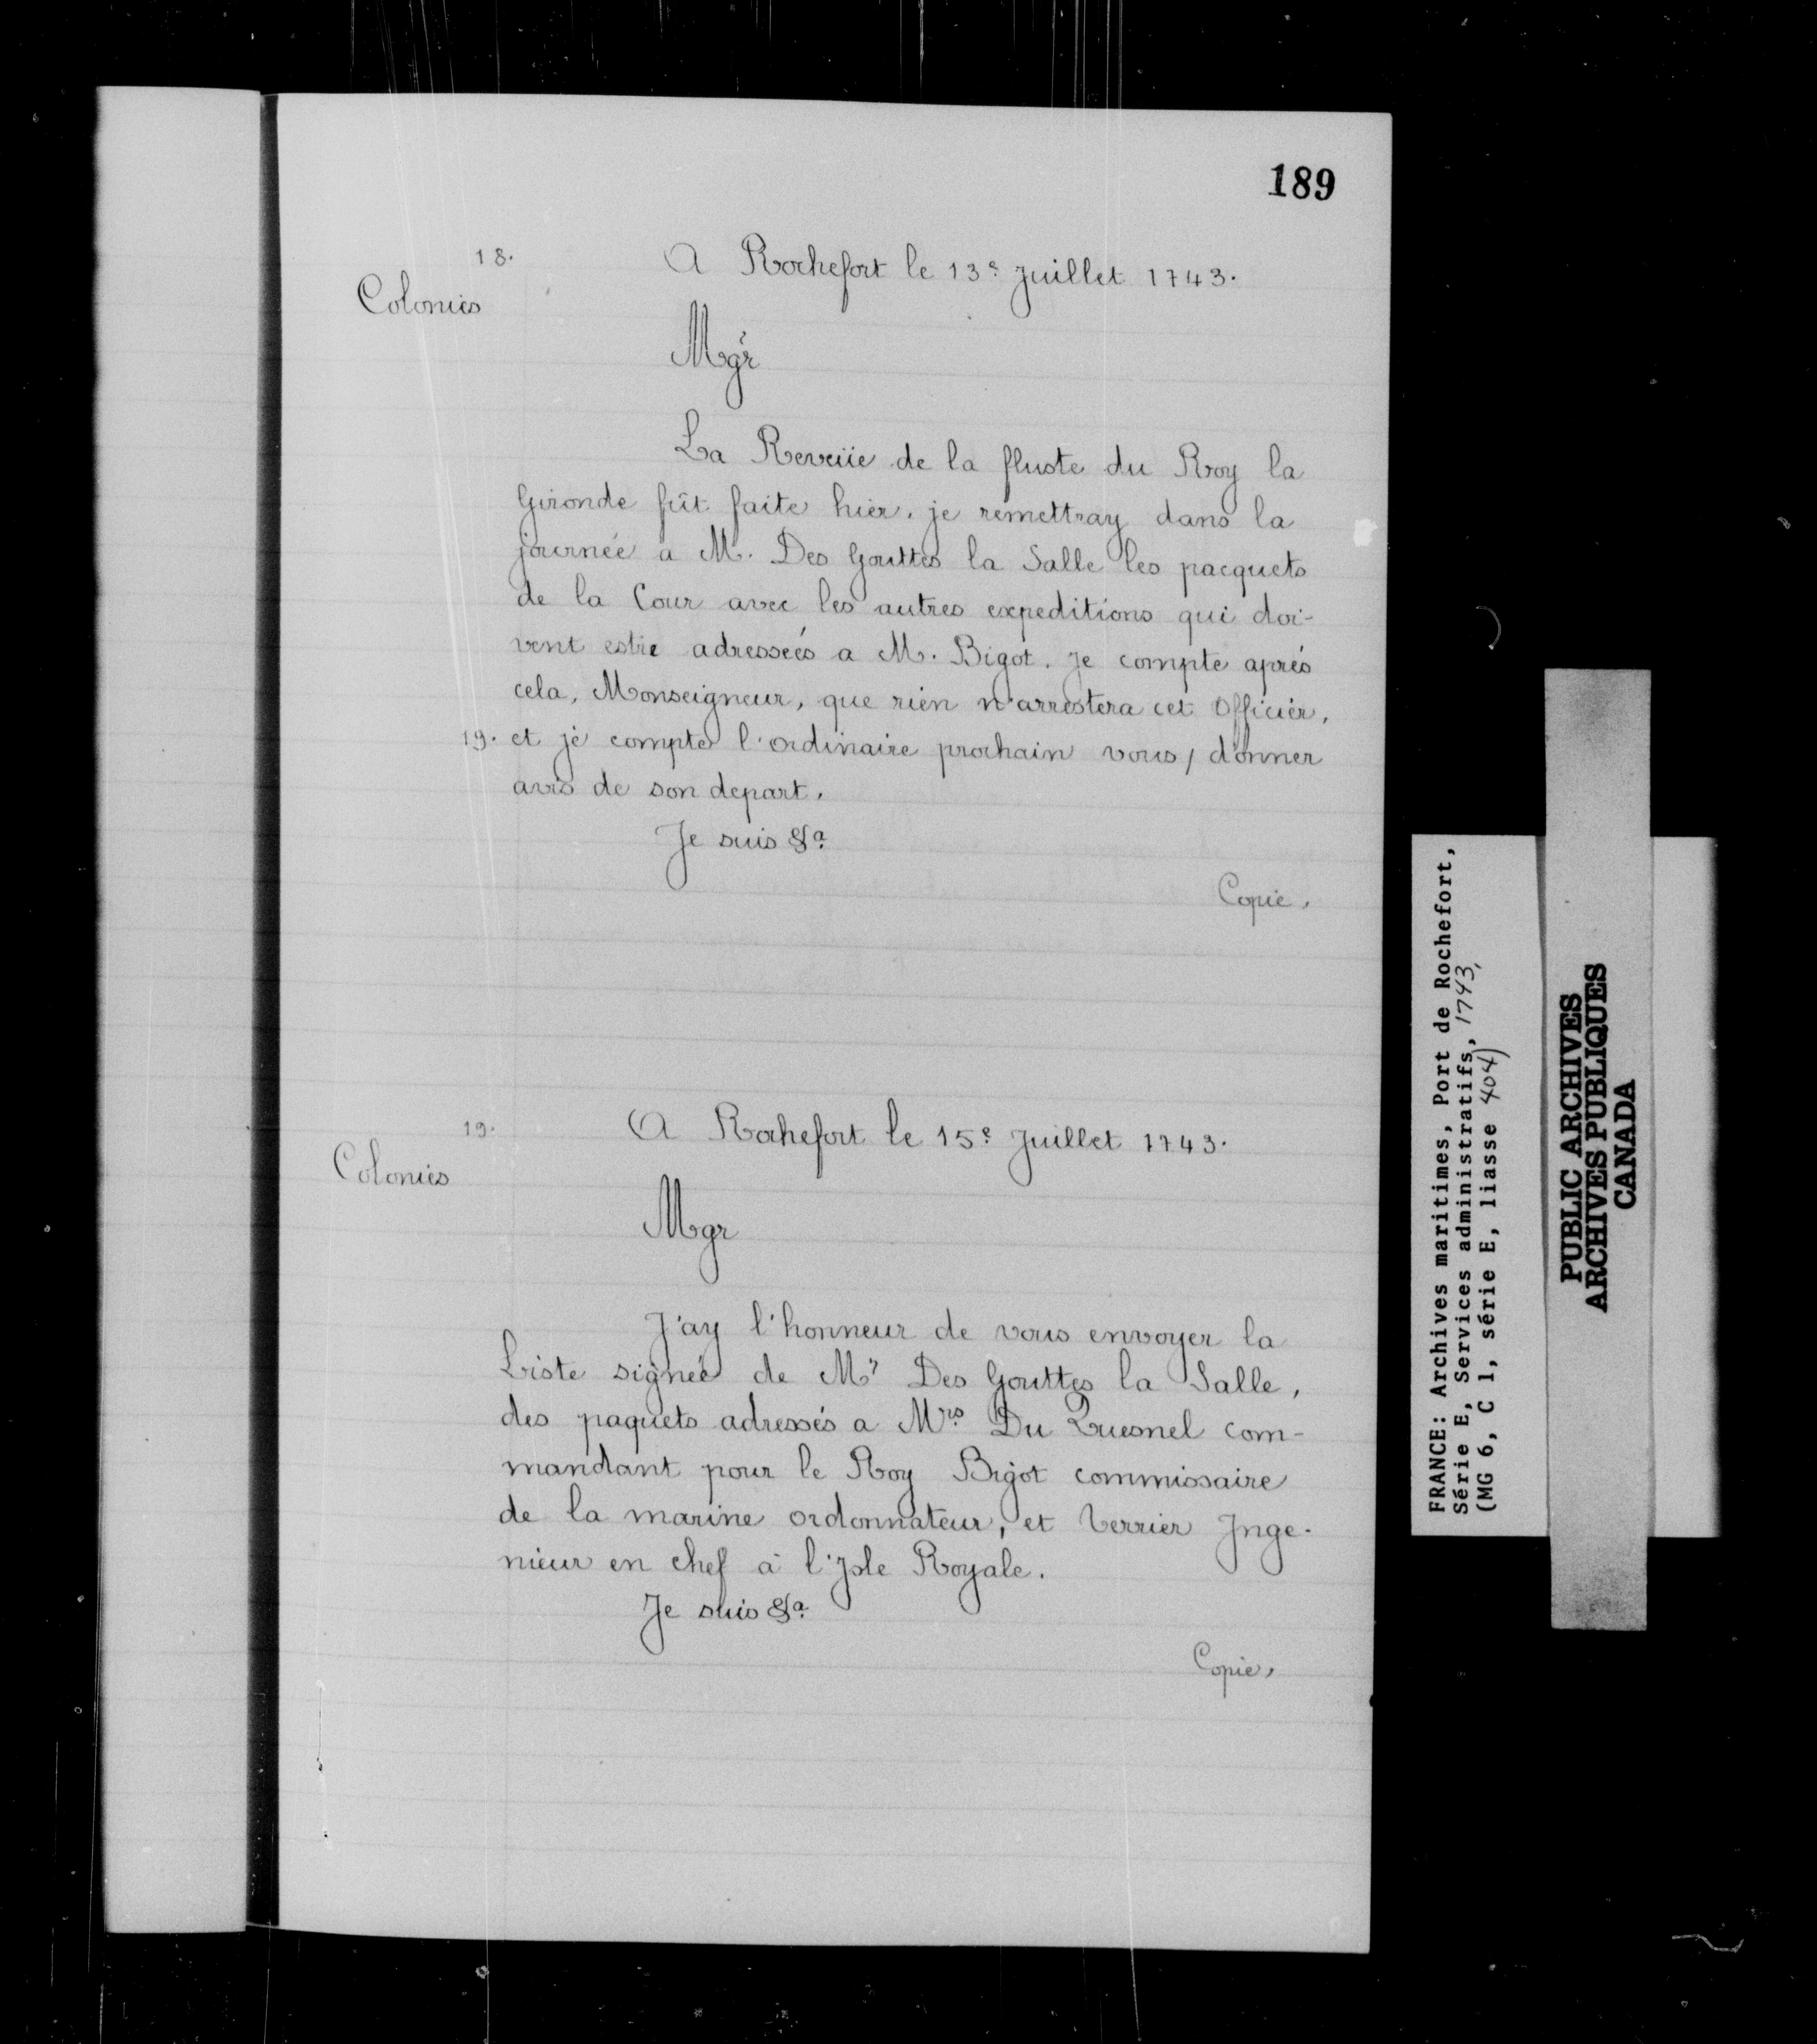 189
18.
A Rochefort le 13e Juillet 1743.
Colonies
Mgr
La Reveüe de la fluste du Roy la
Gironde fût faite hier. je remettray dans la
journée a M. Des Gouttes la Salle les pacquets
de la Cour avec les autres expeditions qui doi-
vent estre adressées a M. Bigot. Je compte aprés
cela, Monseigneur, que rien n'arrestera cet Officier,
19. et je compte l'ordinaire prochain vous / donner
avis de son depart.
Je suis &a
Copie.
19.
A Rochefort le 15e Juillet 1743.
Colonies
Mgr
J'ay l'honneur de vous envoyer la
Liste signée de Mr Des Gouttes la Salle,
des paquets adressés a Mrs Du Quesnel com-
mandant pour le Roy Bigot commissaire
de la marine ordonnateur, et Verrier Inge-
nieur en chef à l'Isle Royale.
Je suis &a
Copie.
FRANCE: Archives maritimes, Port de Rochefort,
Série E, Services administratifs, 1743,
(MG 6, C 1, série E, liasse 404)
PUBLIC ARCHIVES
ARCHIVES PUBLIQUES
CANADA